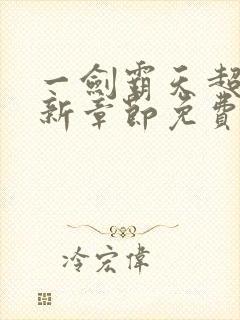 一劍霸天超
新章節免費
冷宏偉